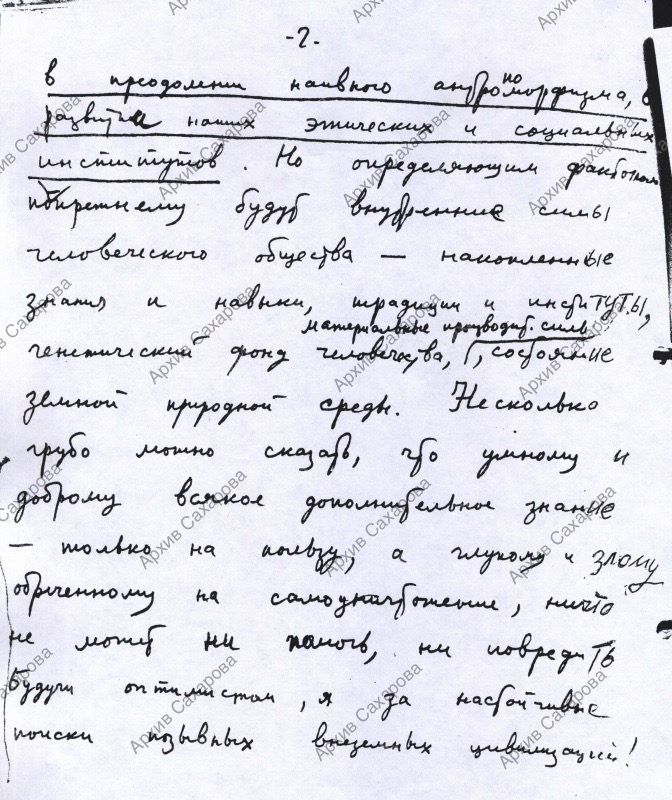 -2.
в преодолении наивного антропоморфизма, в
развитии наших этических и социальных
институтов. Но определяющим фактором
по-прежнему будут внутренние силы
человеческого общества — накопленные
знания и навыки, традиции и институты,
материальные производит. силы
генетический фонд человечества, состояние
земной природной среды. Несколько
грубо можно сказать, что умному и
доброму всякое дополнительное знание
— только на пользу, а глупому и злому
обреченному на самоуничтожение, ничто
не может ни помочь, ни повредить
Будучи оптимистом, я за настойчивые
поиски позывных внеземных цивилизаций!
Архив Сахарова